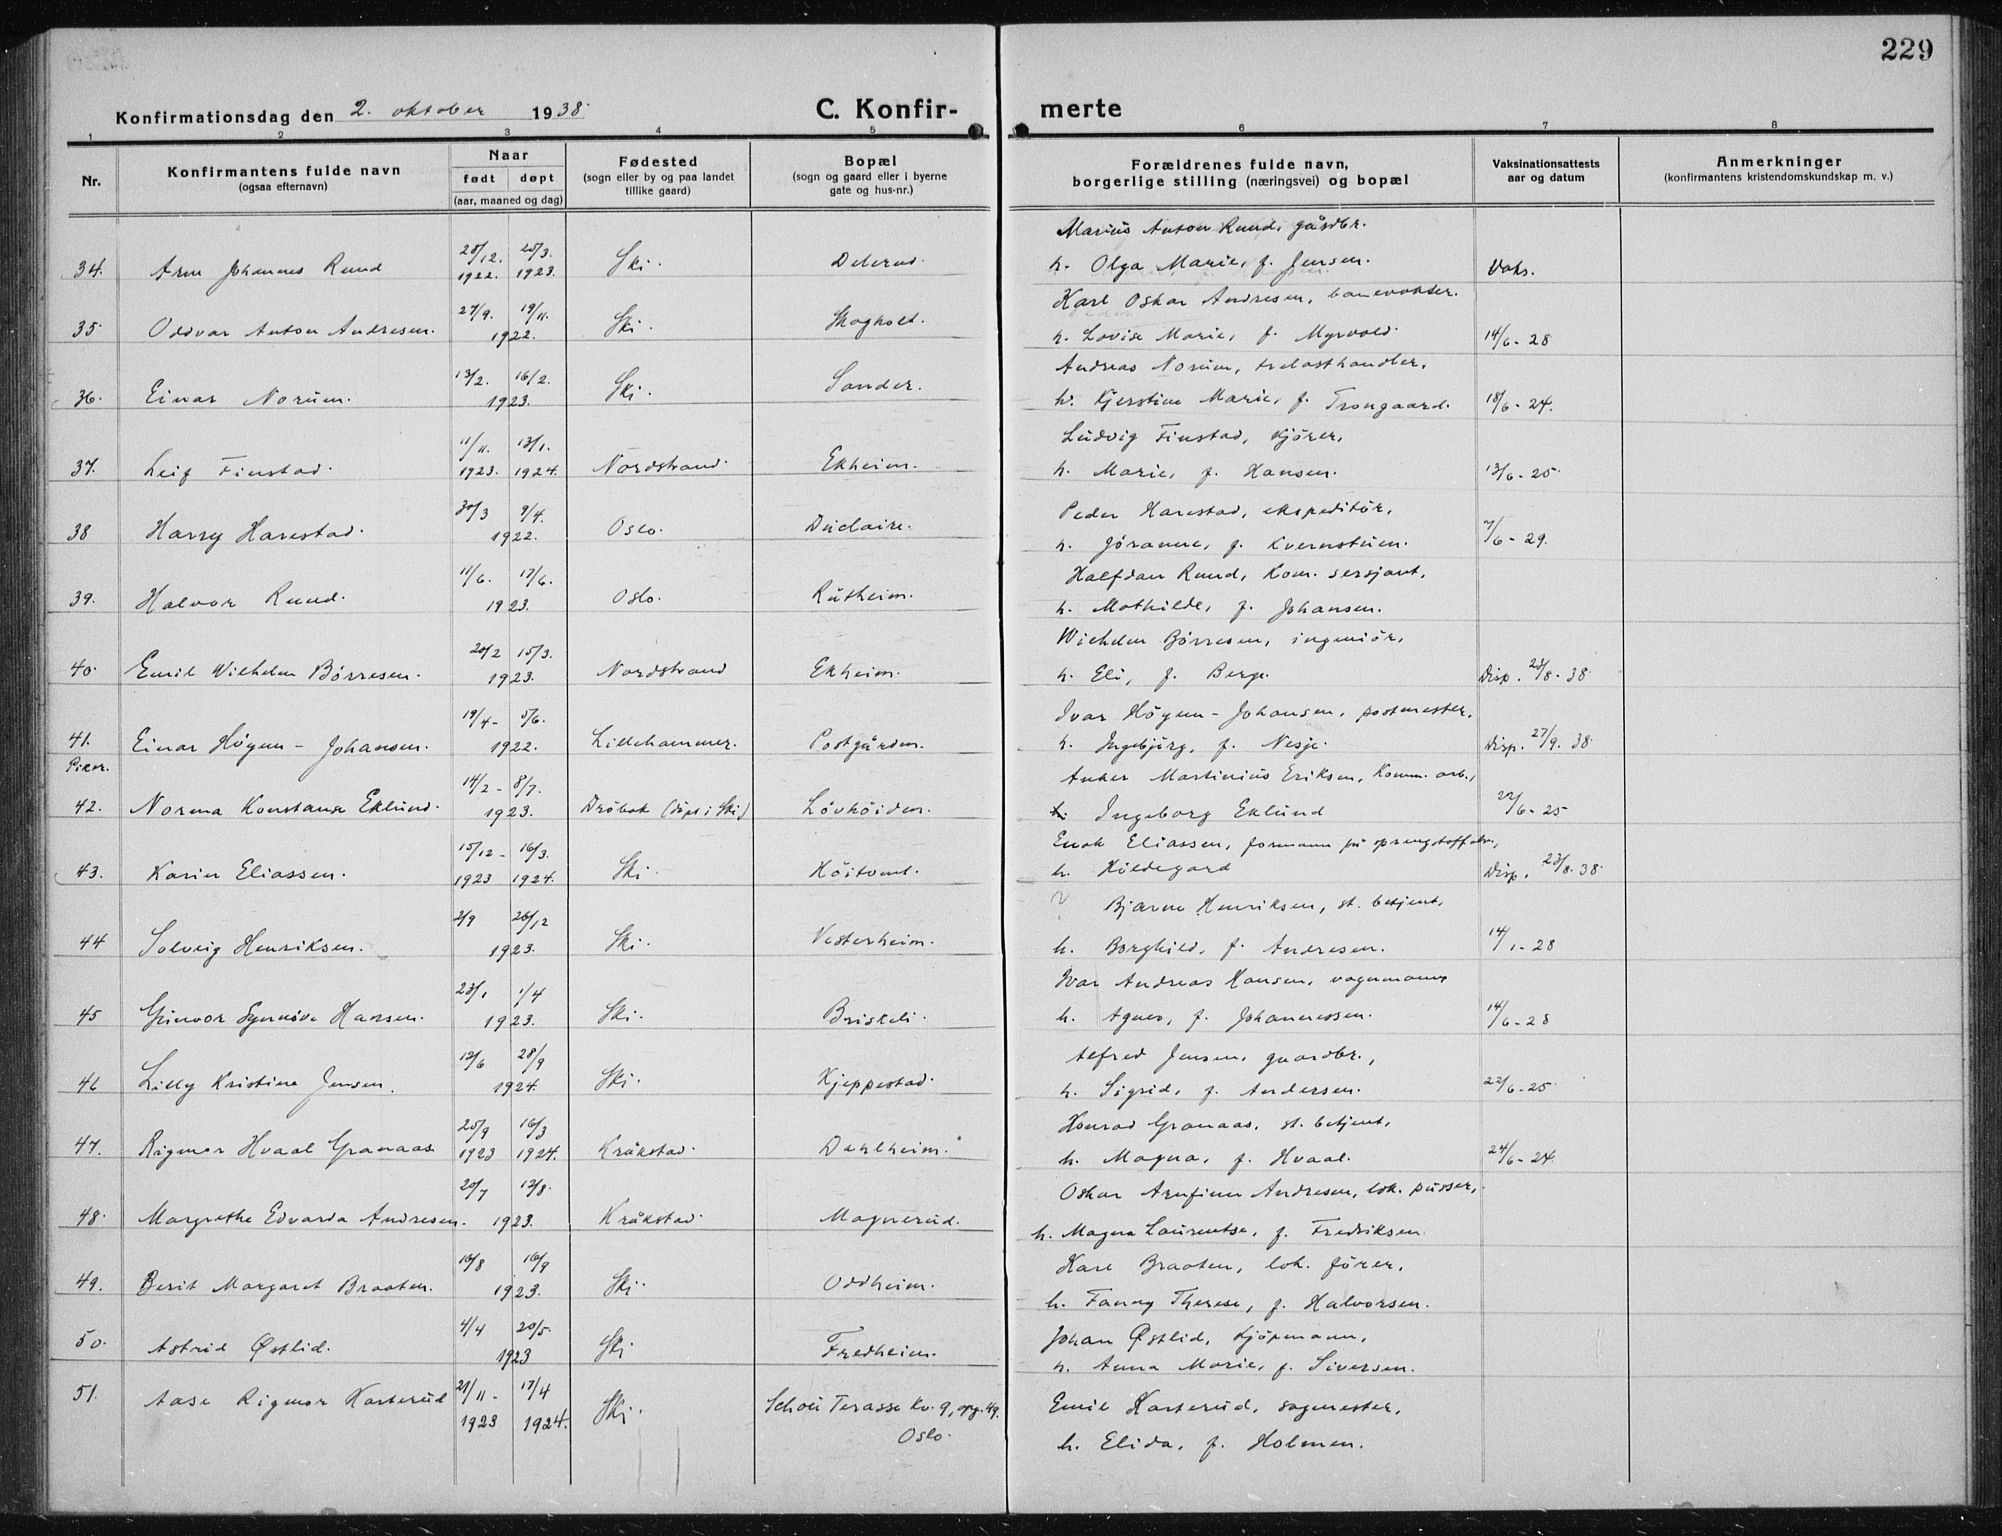 229
Konfirmationsdag den 2. oktober 1938.
C. Konfir- merte
1 2 3 4 5 6 7 8
Nr.
Konfirmantens fulde navn (ogsaa efternavn)
Naar født døpt (aar, maaned og dag)
Fødested (sogn eller by og paa landet tillike gaard)
Bopæl (sogn og gaard eller i byerne gate og hus-nr.)
Forældrenes fulde navn, borgerlige stilling (næringsvei) og bopæl
Vaksinationsattests aar og datum
Anmerkninger (konfirmantens kristendomskundskap m. v.)
Marius Anton Ruud, gårdbr.
34. Arne Johannes Ruud 28/12. 1922. 25/3. 1923. Ski. h. Olga Marie, f. Jensen. Vaks.
Karl Oskar Andresen, banevokter.
35. Oddvar Anton Andresen. 27/9. 19/11. 1922. Ski. Skogholt. h. Lovise Marie, f. Myrvold. 14/6-28
Andreas Norum, trelasthandler,
36. Einar Norum. 13/2. 16/2. 1923. Ski. Sander. h. Kjerstine Marie, f. Trongaard. 18/6-24.
Ludvig Finstad, kjører,
37. Leif Finstad. 11/11. 1923. 13/1. 1924. Nordstrand. Ekheim. h. Marie, f. Hansen. 13/6-25.
Peder Harestad, ekspeditør,
38 Harry Harestad. 30/3 9/4. 1922. Oslo. Duclaire. h. Jøranne, f. Kvernstuen. 7/6-29.
Halfdan Ruud, kom. sersjant,
39. Halvor Ruud. 11/6. 17/6. 1923. Oslo. Rutheim. h. Mathilde, f. Johansen.
Wilhelm Børresen, ingeniør,
40. Emil Wilhelm Børresen. 20/2 15/3. 1923. Nordstrand Ekheim. h. Eli, f. Berge. Disp. 23/8-38
Ivar Høgun-Johansen, postmester,
41. Einar Høgun-Johansen. 19/4- 5/6. 1922. Lillehammer. Postgården. h. Ingebjørg, f. Nesje. Disp. 27/9. 38.
Piker.
Anker Martinius Eriksen, komm. arb.,
42. Norma Konstanse Eklund. 14/2- 8/7. 1923. Drøbak (døpt i Ski) Løvhøiden. h. Ingeborg Eklund 22/6-25
Enok Eliassen, formann på sprengstoffabr.,
43. Karin Eliassen. 15/12- 1923 16/3. 1924. Ski. Høitomt. h. Hildegard Disp. 23/8. 38.
Bjarne Henriksen, st. betjent,
44 Solveig Henriksen. 2/9 26/12 1923. Ski. Vesterheim. h. Borghild, f. Andresen. 14/1-28
Ivar Andreas Hansen, vognmann
45 Gunvor Synnøve Hansen. 23/1 1/4 1923. Ski. Briskeli. h. Agnes, f. Johannessen. 14/6-28
Alfred Jensen, gaardbr.,
46 Lilly Kristine Jensen. 12/6 28/9 1924. Ski. Kjeppestad. h. Sigrid, f. Andersen. 22/6-25
Konrad Granaas, st. betjent,
47. Rigmor Hvaal Granaas 25/9 1923 16/3 1924. Kråkstad. Dahlheim. h. Magna, f. Hvaal. 24/6-24.
Oskar Arnfinn Andresen, lok. pusser,
48. Margrethe Edvarda Andresen. 20/7 12/8. 1923. Kråkstad. Magnerud. h. Magna Laurentse, f. Fredriksen
Karl Braaten, lok. fører,
49. Berit Margaret Braaten. 16/8 16/9 1923. Ski. Oddheim. h. Fanny Therese, f. Halvorsen.
Johan Østlid, kjøpmann,
50. Astrid Østlid. 4/4 20/5. 1923 Ski Fredheim. h. Anna Marie, f. Siversen.
51. Aase Rigmor Karterud 21/11- 1923 17/4 1924. Ski. Schou Terasse kv. 9, opg. 49. Oslo. Emil Karterud, sagmester,
h. Elida, f. Holmen.